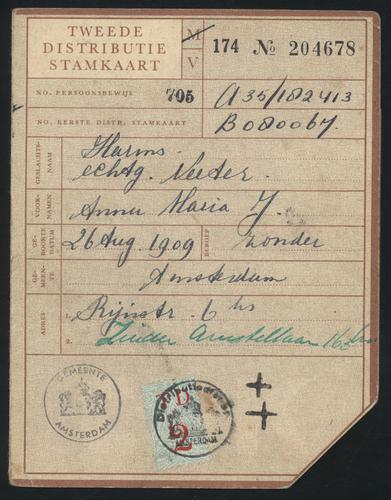 TWEEDE
DISTRIBUTIE
STAMKAART
M
V
174 No 204678
NO. PERSOONSBEWIJS
705
A 35/182413
NO. EERSTE DISTR. STAMKAART
B080067.
GESLACHTS-
NAAM
Harms
echtg. Neeter.
VOOR-
NAMEN
Anna Maria J.
GE-
BOORTE
DATUM
26 Aug. 1909
BEROEP
zonder
GE-
MEEN-
TE
Amsterdam
ADRES
1.
Rijnstr. 6 hs
2.
Zuider Amstellaan 16
GEMEENTE
AMSTERDAM
Distributiedienst
T.D.
2
AMSTERDAM